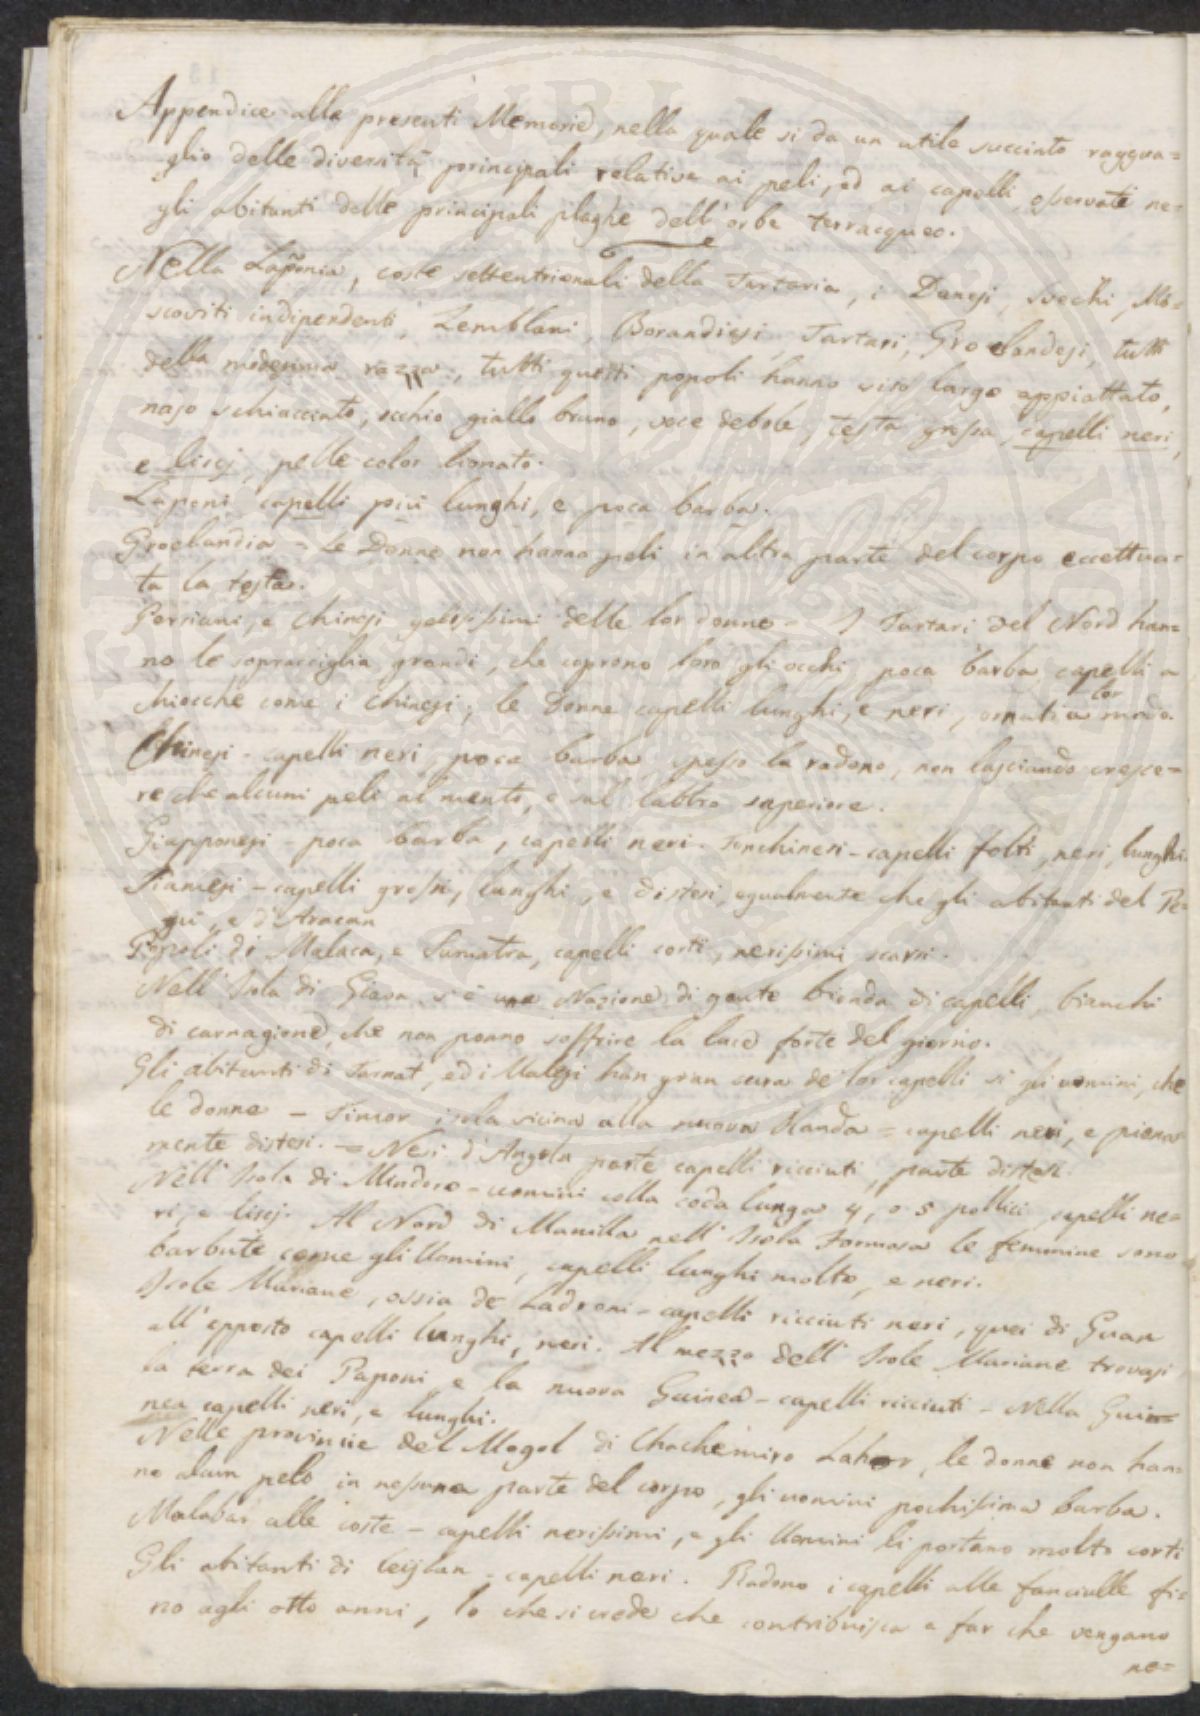 Appendice alle presenti Memorie, nella quale si da un utile succinto raggua=
glio delle diversità principali relative ai peli, ed ai capelli osservate ne=
gli abitanti delle principali plaghe dell'orbe terracqueo.
Nella Lapponia, coste settentrionali della Tartaria, i Danesi, svechi, Mo=
scoviti indipendenti, Zemblani, Borandiesi, Tartari, Groelandesi, tutti
della medesima razza, tutti questi popoli hanno viso largo appiattato,
naso schiacciato, occhio giallo bruno, voce debole, testa grossa, capelli neri,
e liscj, pelle color lionato.
Laponi capelli più lunghi, e poca barba.
Groelandia = Le Donne non hanno peli in altra parte del corpo eccettua=
ta la testa.
Persiani, e Chinesi gelosissimi delle lor donne = I Tartari del Nord han=
no le sopracciglia grandi, che coprono loro gli occhi, poca barba, capelli a
chiocche come i Chinesi; le Donne capelli lunghi, e neri, ornati a lor modo.
Chinesi - capelli neri, poca barba spesso la radono, non lasciando cresce=
re che alcuni peli al mento, e sul labbro superiore.
Giapponesi - poca barba, capelli neri. Tonchinesi - capelli folti, neri, lunghi.
Siamesi - capelli grossi, lunghi, e distesi, egualmente che gli abitanti del Pe=
gù, e d'Aracan
Popoli di Malaca, e Sumatra, capelli corti, nerissimi, scarni.
Nell'Isola di Giava v'è una Nazione di gente bionda di capelli, bianchi
di carnagione, che non ponno soffrire la luce forte del giorno.
Gli abitanti di Ternat, ed i Malesi han gran cura de' lor capelli si gli uomini, che
le donne - Timor isola vicina alla nuova Olanda = capelli neri, e piena=
mente distesi. = Neri d'Angola parte capelli ricciuti, parte distesi.
Nell'Isola di Mindoro - uomini colla coda lunga 4, o 5 pollici, capelli ne=
ri, e liscj. Al Nord di Manilla nell'Isola Formosa le femmine sono
barbute come gli Uomini, capelli lunghi molto, e neri.
Isole Mariane, ossia de' Ladroni - capelli ricciuti neri, quei di Guan
all'opposto capelli lunghi, neri. Al mezzo dell'Isole Mariane trovasi
la terra dei Paponi, e la nuova Guinea - capelli ricciuti - Nella Gui=
nea capelli neri, e lunghi.
Nelle provincie del Mogol di Chachemiro Lahor, le donne non han=
no alcun pelo in nessuna parte del corpo, gli uomini pochissima barba.
Malabar alle coste - capelli nerissimi, e gli Uomini li portano molto corti
Gli abitanti di Ceijlan - capelli neri. Radono i capelli alle fanciulle fi=
no agli otto anni, lo che si crede che contribuisca a far che vengano
ne=